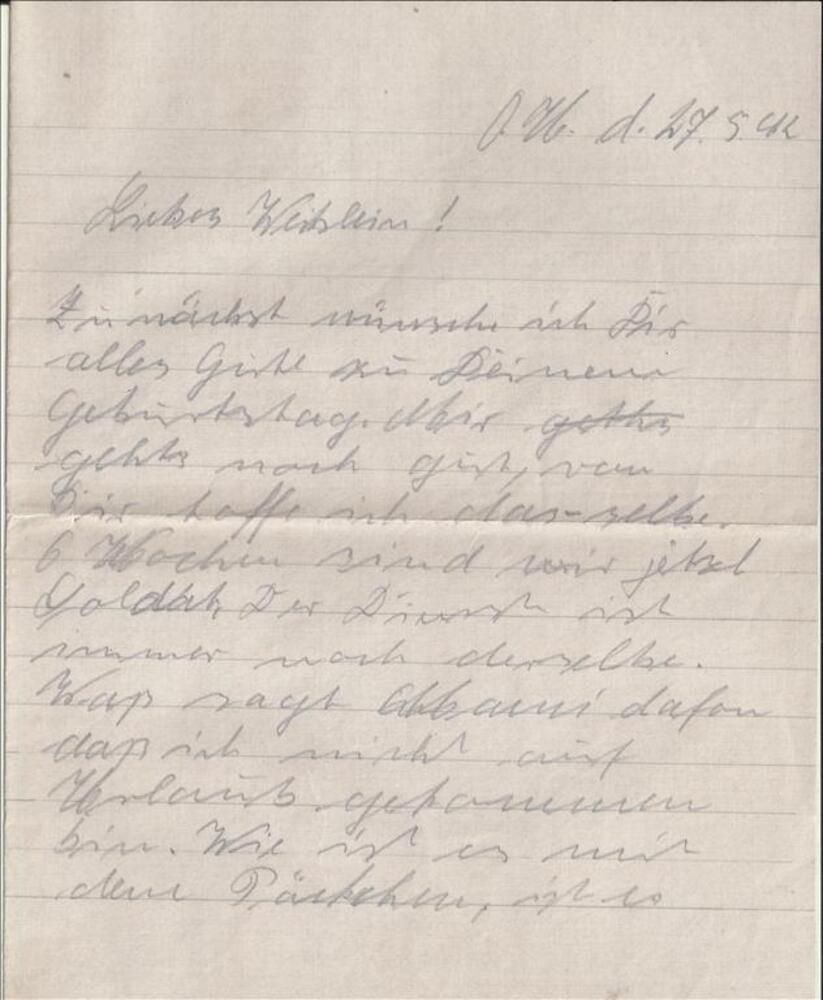 O.U. d. 27.5.42
Liebes Weiblein!
Zunächst wünsche ich Dir
alles Gute zu Deinem
Geburtstag. Mir geths
gehts noch gut, von
Dir hoffe ich das-selbe.
6 Wochen sind wir jetzt
Soldat. Der Dienst ist
immer noch derselbe.
Waß sagt dafon
daß ich nicht auf
Urlaub gekommen
bin. Wie ist es mit
dem Päckchen, ist es